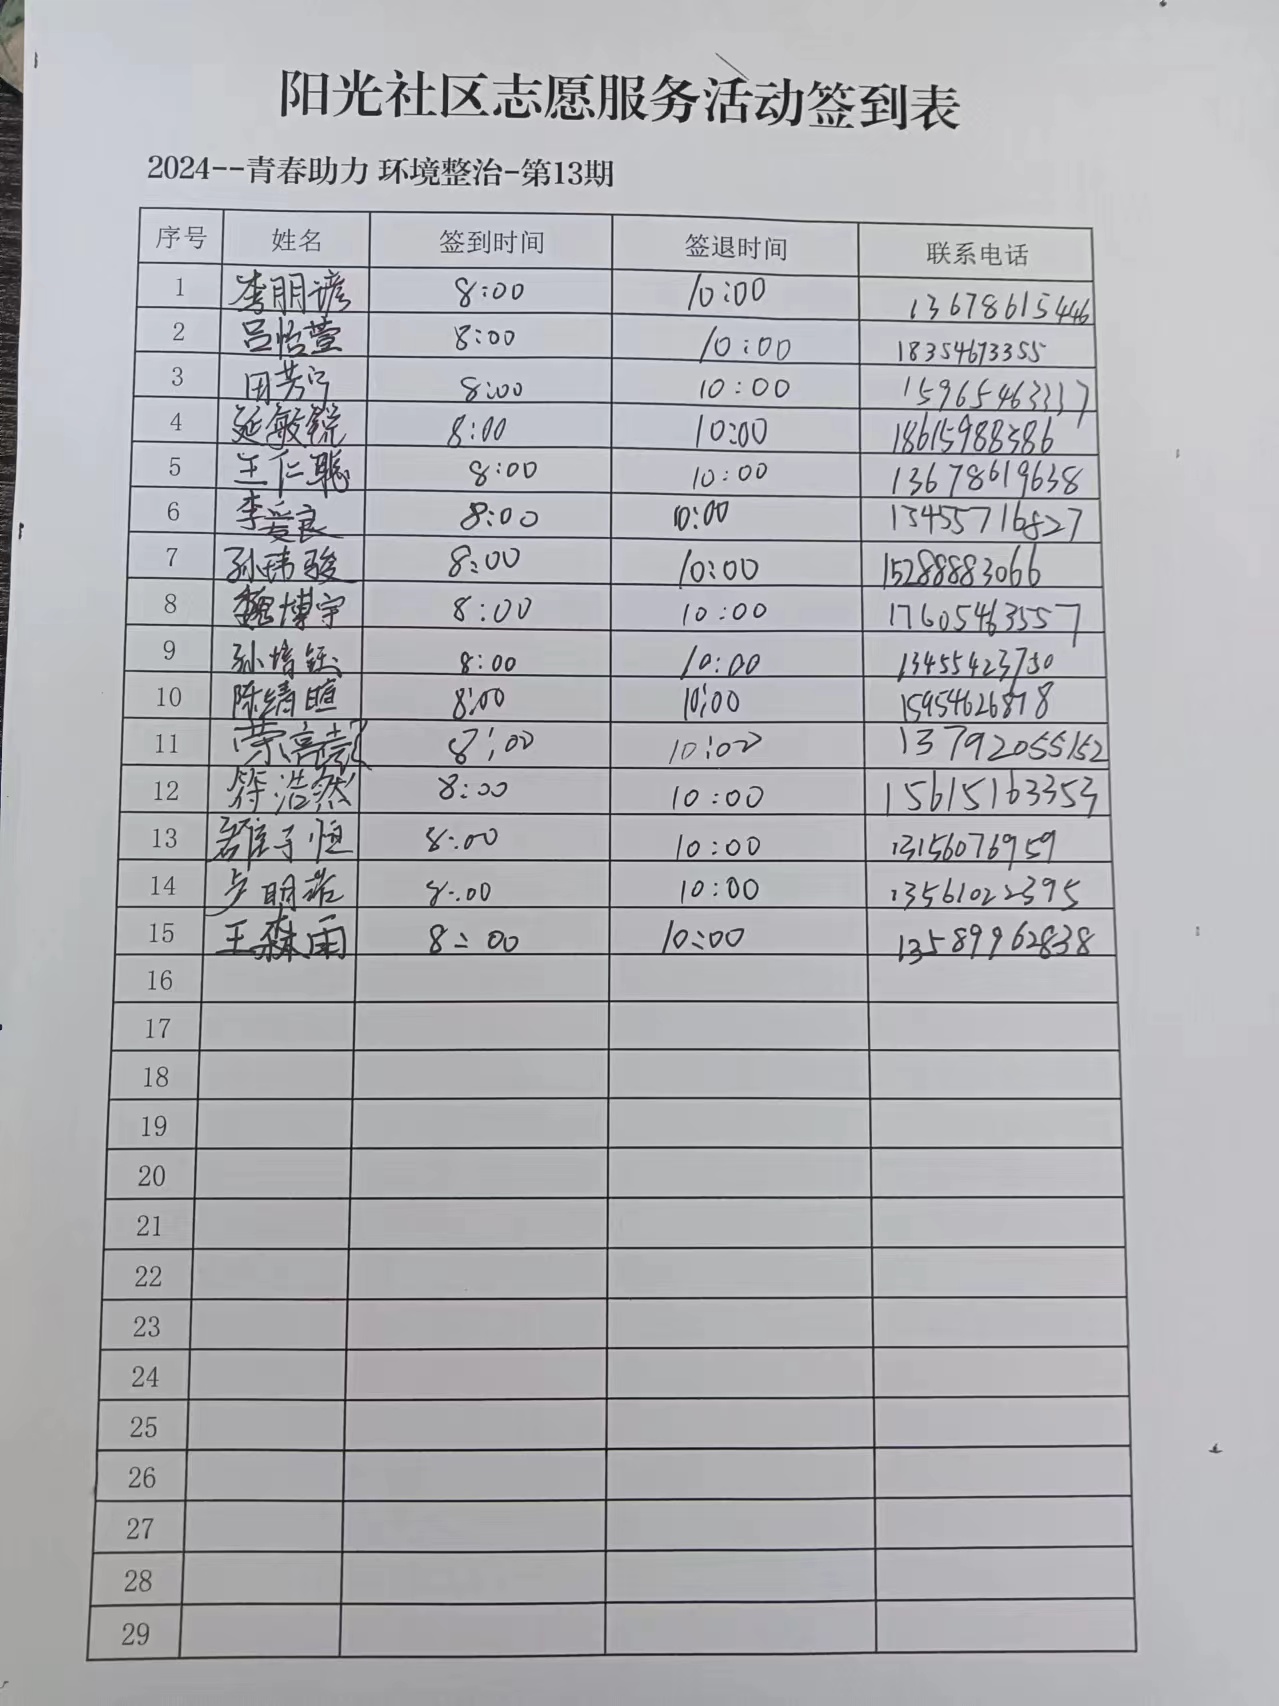 阳光社区志愿服务活动签到表
2024--青春助力 环境整治-第13期
序号 姓名 签到时间 签退时间 联系电话
1 李朋谚 8:00 10:00 13678615446
2 吕怡萱 8:00 10:00 18354673355
3 田芳宁 8:00 10:00 15965463337
4 延敏锐 8:00 10:00 18615988386
5 王仁聪 8:00 10:00 13678619638
6 李爱良 8:00 10:00 13455716827
7 孙玮骏 8:00 10:00 15288883066
8 魏博宇 8:00 10:00 17605463557
9 孙培钰 8:00 10:00 13455423730
10 陈绪暄 8:00 10:00 15954626878
11 8:00 10:00 13792055152
12 符浩然 8:00 10:00 15615163353
13 子恒 8:00 10:00 13156076959
14 明 8:00 10:00 13561022395
15 王森雨 8:00 10:00 13589962838
16
17
18
19
20
21
22
23
24
25
26
27
28
29